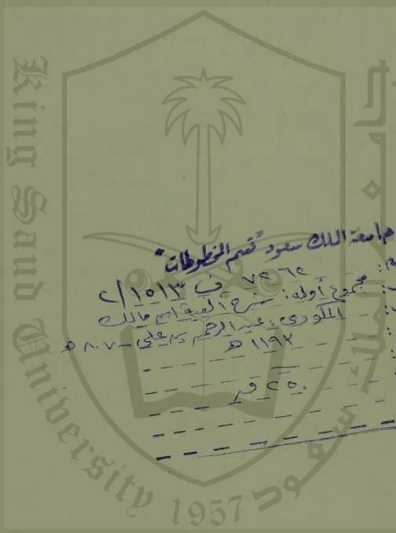 King Saud University
1957
جامعة الملك سعود "قسم المخطوطات"
٧٢٦٢ ف ١٥١٣/٢
مجموع أوله: شرح ألفية ابن مالك
المكودي، عبدالرحمن بن علي - ٨٠٧ هـ
١١٩٢ هـ
٢٥٠ ق